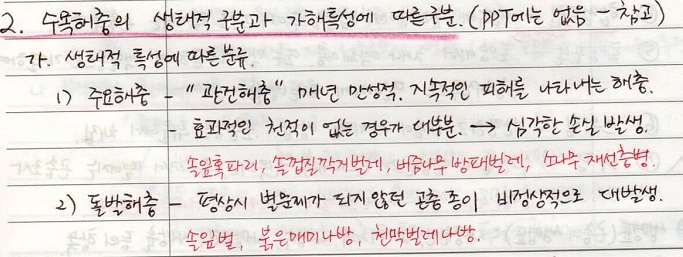 2. 수목해충의 생태적 구분과 가해특성에 따른구분. (PPT에는 없음 참고)
가. 생태적 특성에 따른분류.
1) 주요해충 - "관건해충" 매년 만성적, 지속적인 피해를 나타내는 해충.
- 효과적인 천적이 없는 경우가 대부분. → 심각한 손실 발생.
솔잎혹파리, 솔껍질깍지벌레, 버즘나무 방패벌레, 소나무 재선충병.
2) 돌발해충 - 평상시 별문제가 되지 않던 곤충 종이 비정상적으로 대발생.
솔잎벌, 붉은매미나방, 천막벌레나방.